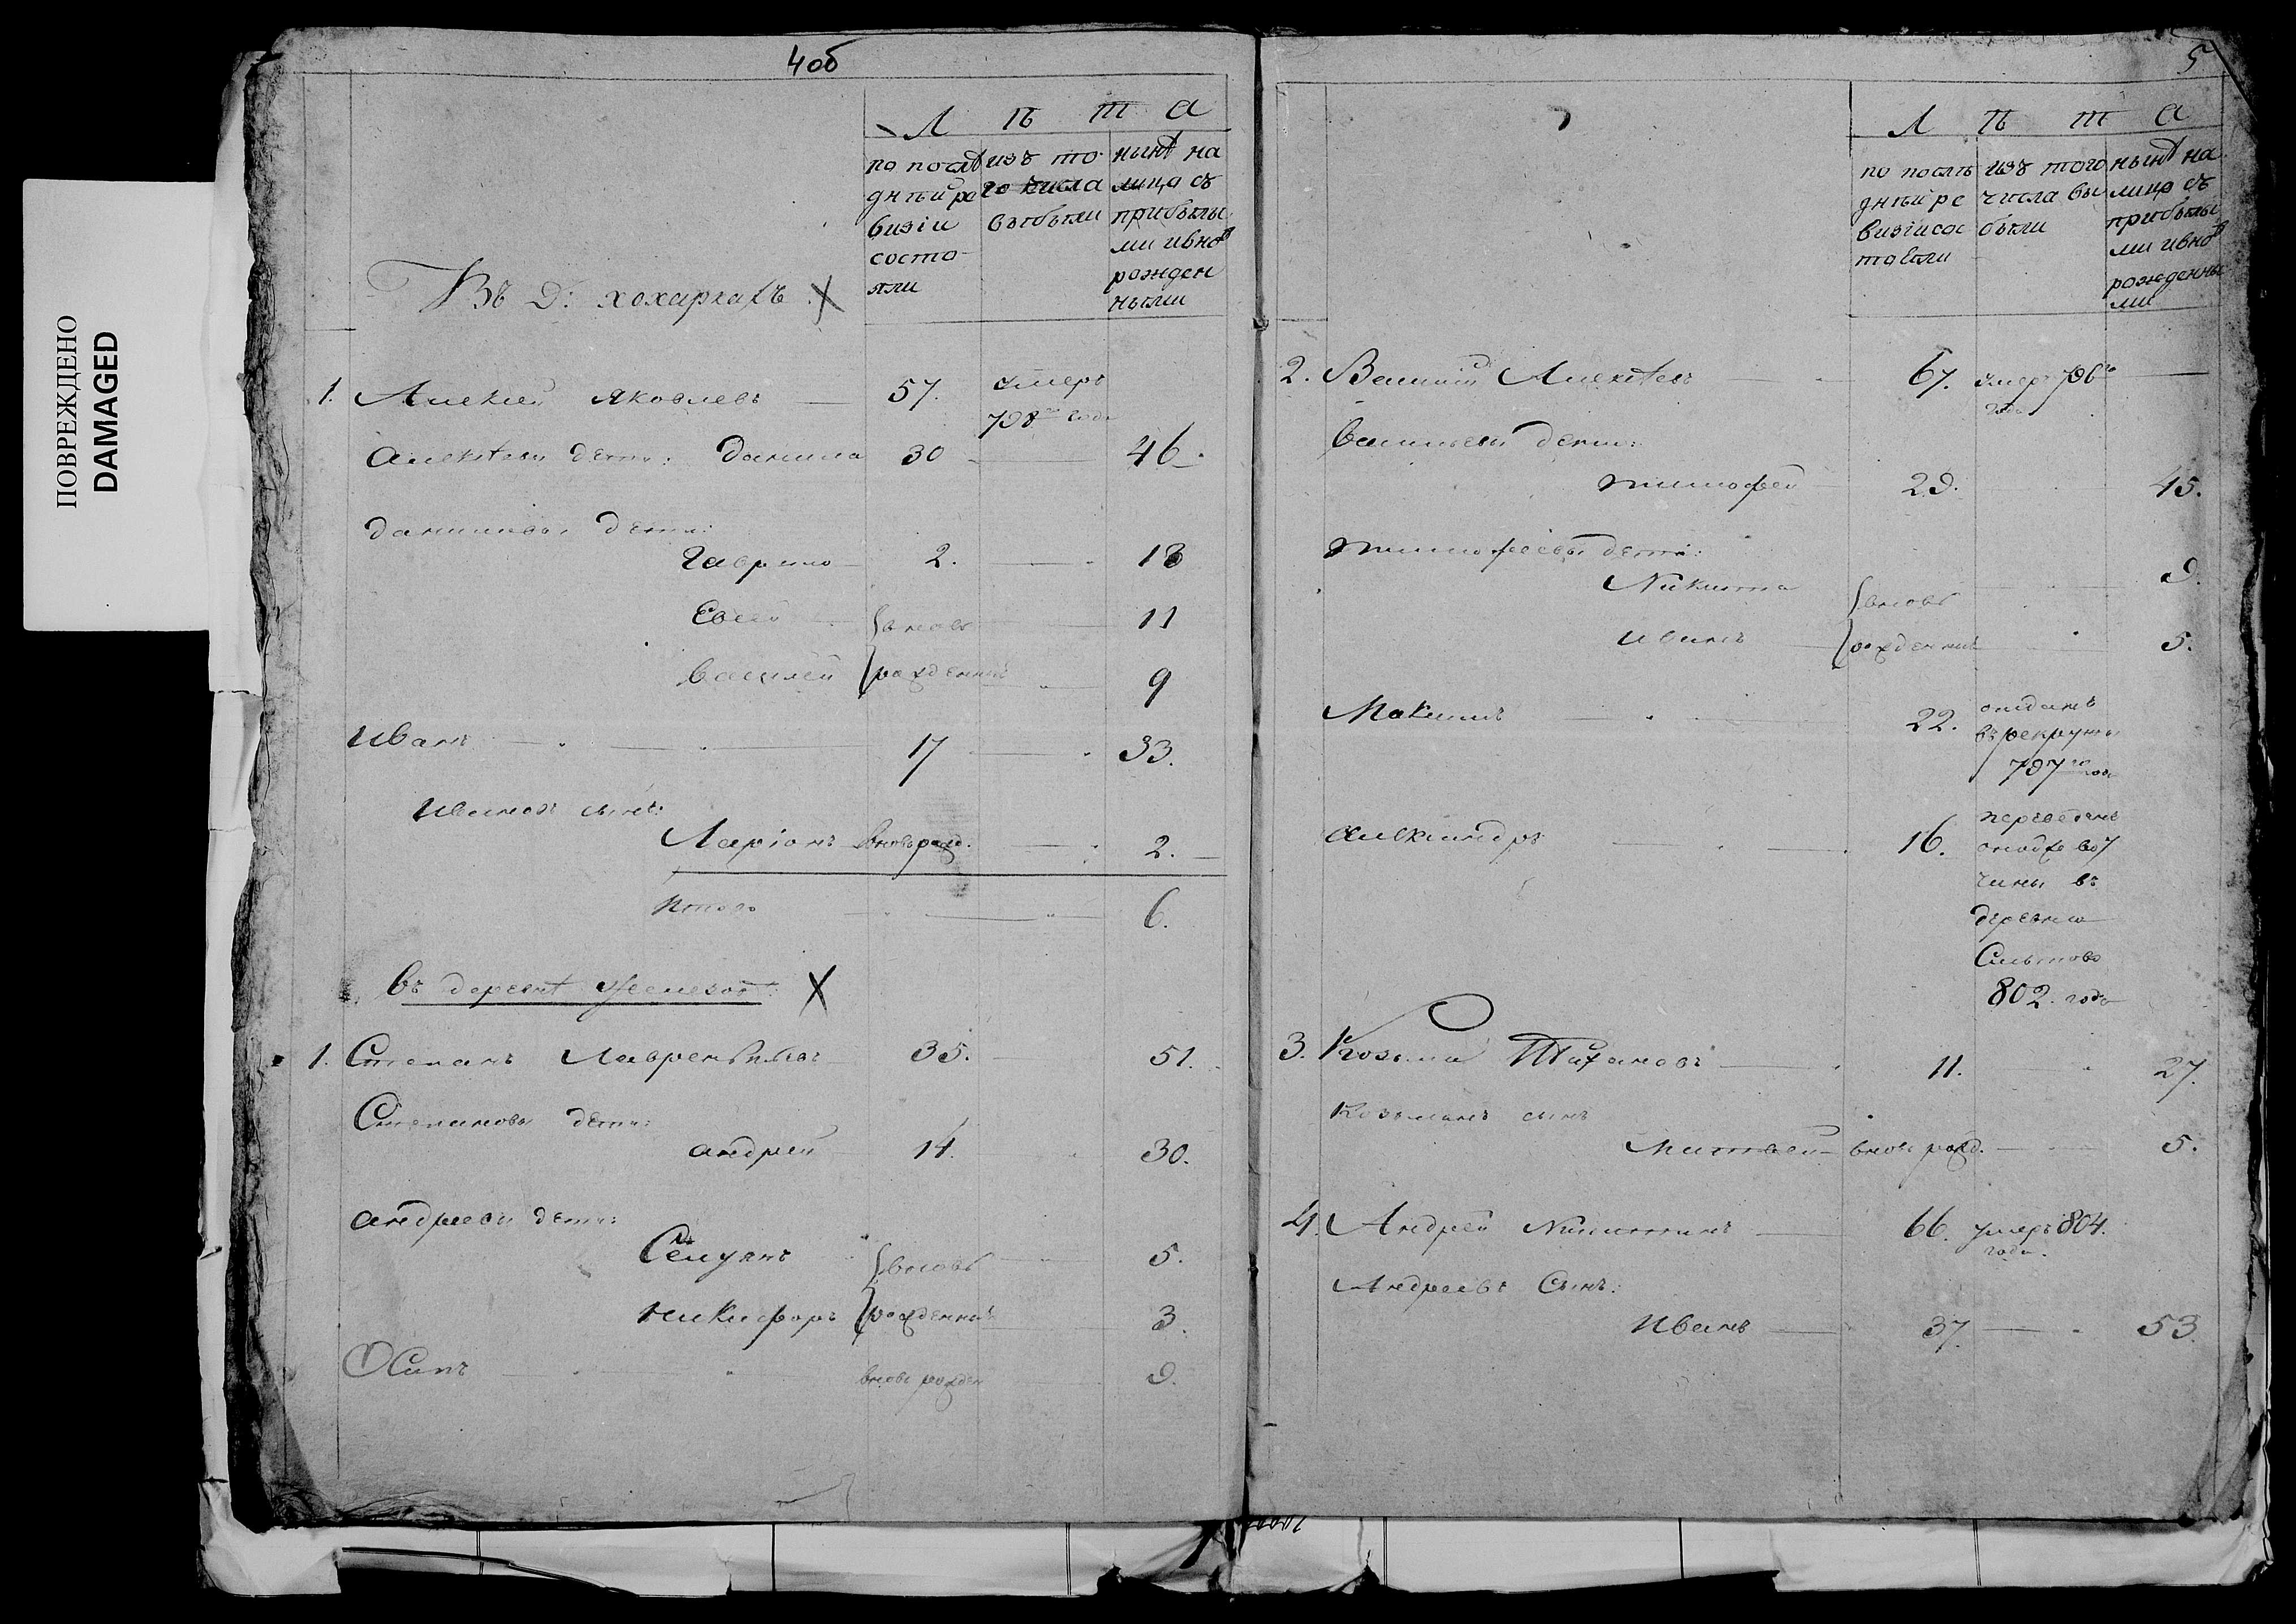 ПОВРЕЖДЕНО
DAMAGED
4об
Л ѣ т а
по послѣ
дней ре
визіи
состо
яли
изъ то
го числа
выбыли
нынѣ на
лицо съ
прибылы
ми и внов
рожден
ными
Въ д: хохаркахъ X
1. Алексей Яковлевъ 57. умеръ
798го года
Алексѣевы дети: Данила 30 46.
Даниловы дети:
Гаврило 2. 18
Евсей вновь 11
Василей рожденные 9
Иванъ 17 33.
Ивановъ сынъ:
Ларіонъ вновь рожд. 2.
Итого 6.
въ деревнѣ X
1. Степанъ Лаврентьевъ 35. 51.
Степановы дети:
андрей 14. 30.
андреевы дети:
Селуянъ вновь 5.
Никифоръ рожденные 3.
Осипъ вновь рожден 9.
5
Л ѣ т а
по послѣ
дней ре
визіи сос
тояли
изъ того
числа вы
были
нынѣ на
лицо съ
прибылы
ми и внов
рожденны
ми
2. Василий Алексѣевъ 67. умеръ 796го
года
Васильевы дети:
Тимофей 29. 45.
Тимофеевы дети:
Никита вновь 9.
Иванъ рожденные 5.
Максимъ 22. отданъ
въ рекруты
797го года
Александръ 16. переведенъ
вот
чины въ
деревню
802. года
3. Козьма Тихановъ 11. 27.
Козьминъ сынъ
Матвей вновь рожд. 5.
4. Андрей Никитинъ 66. умеръ 804.
года.
Андреевъ Сынъ:
Иванъ 37. 53.